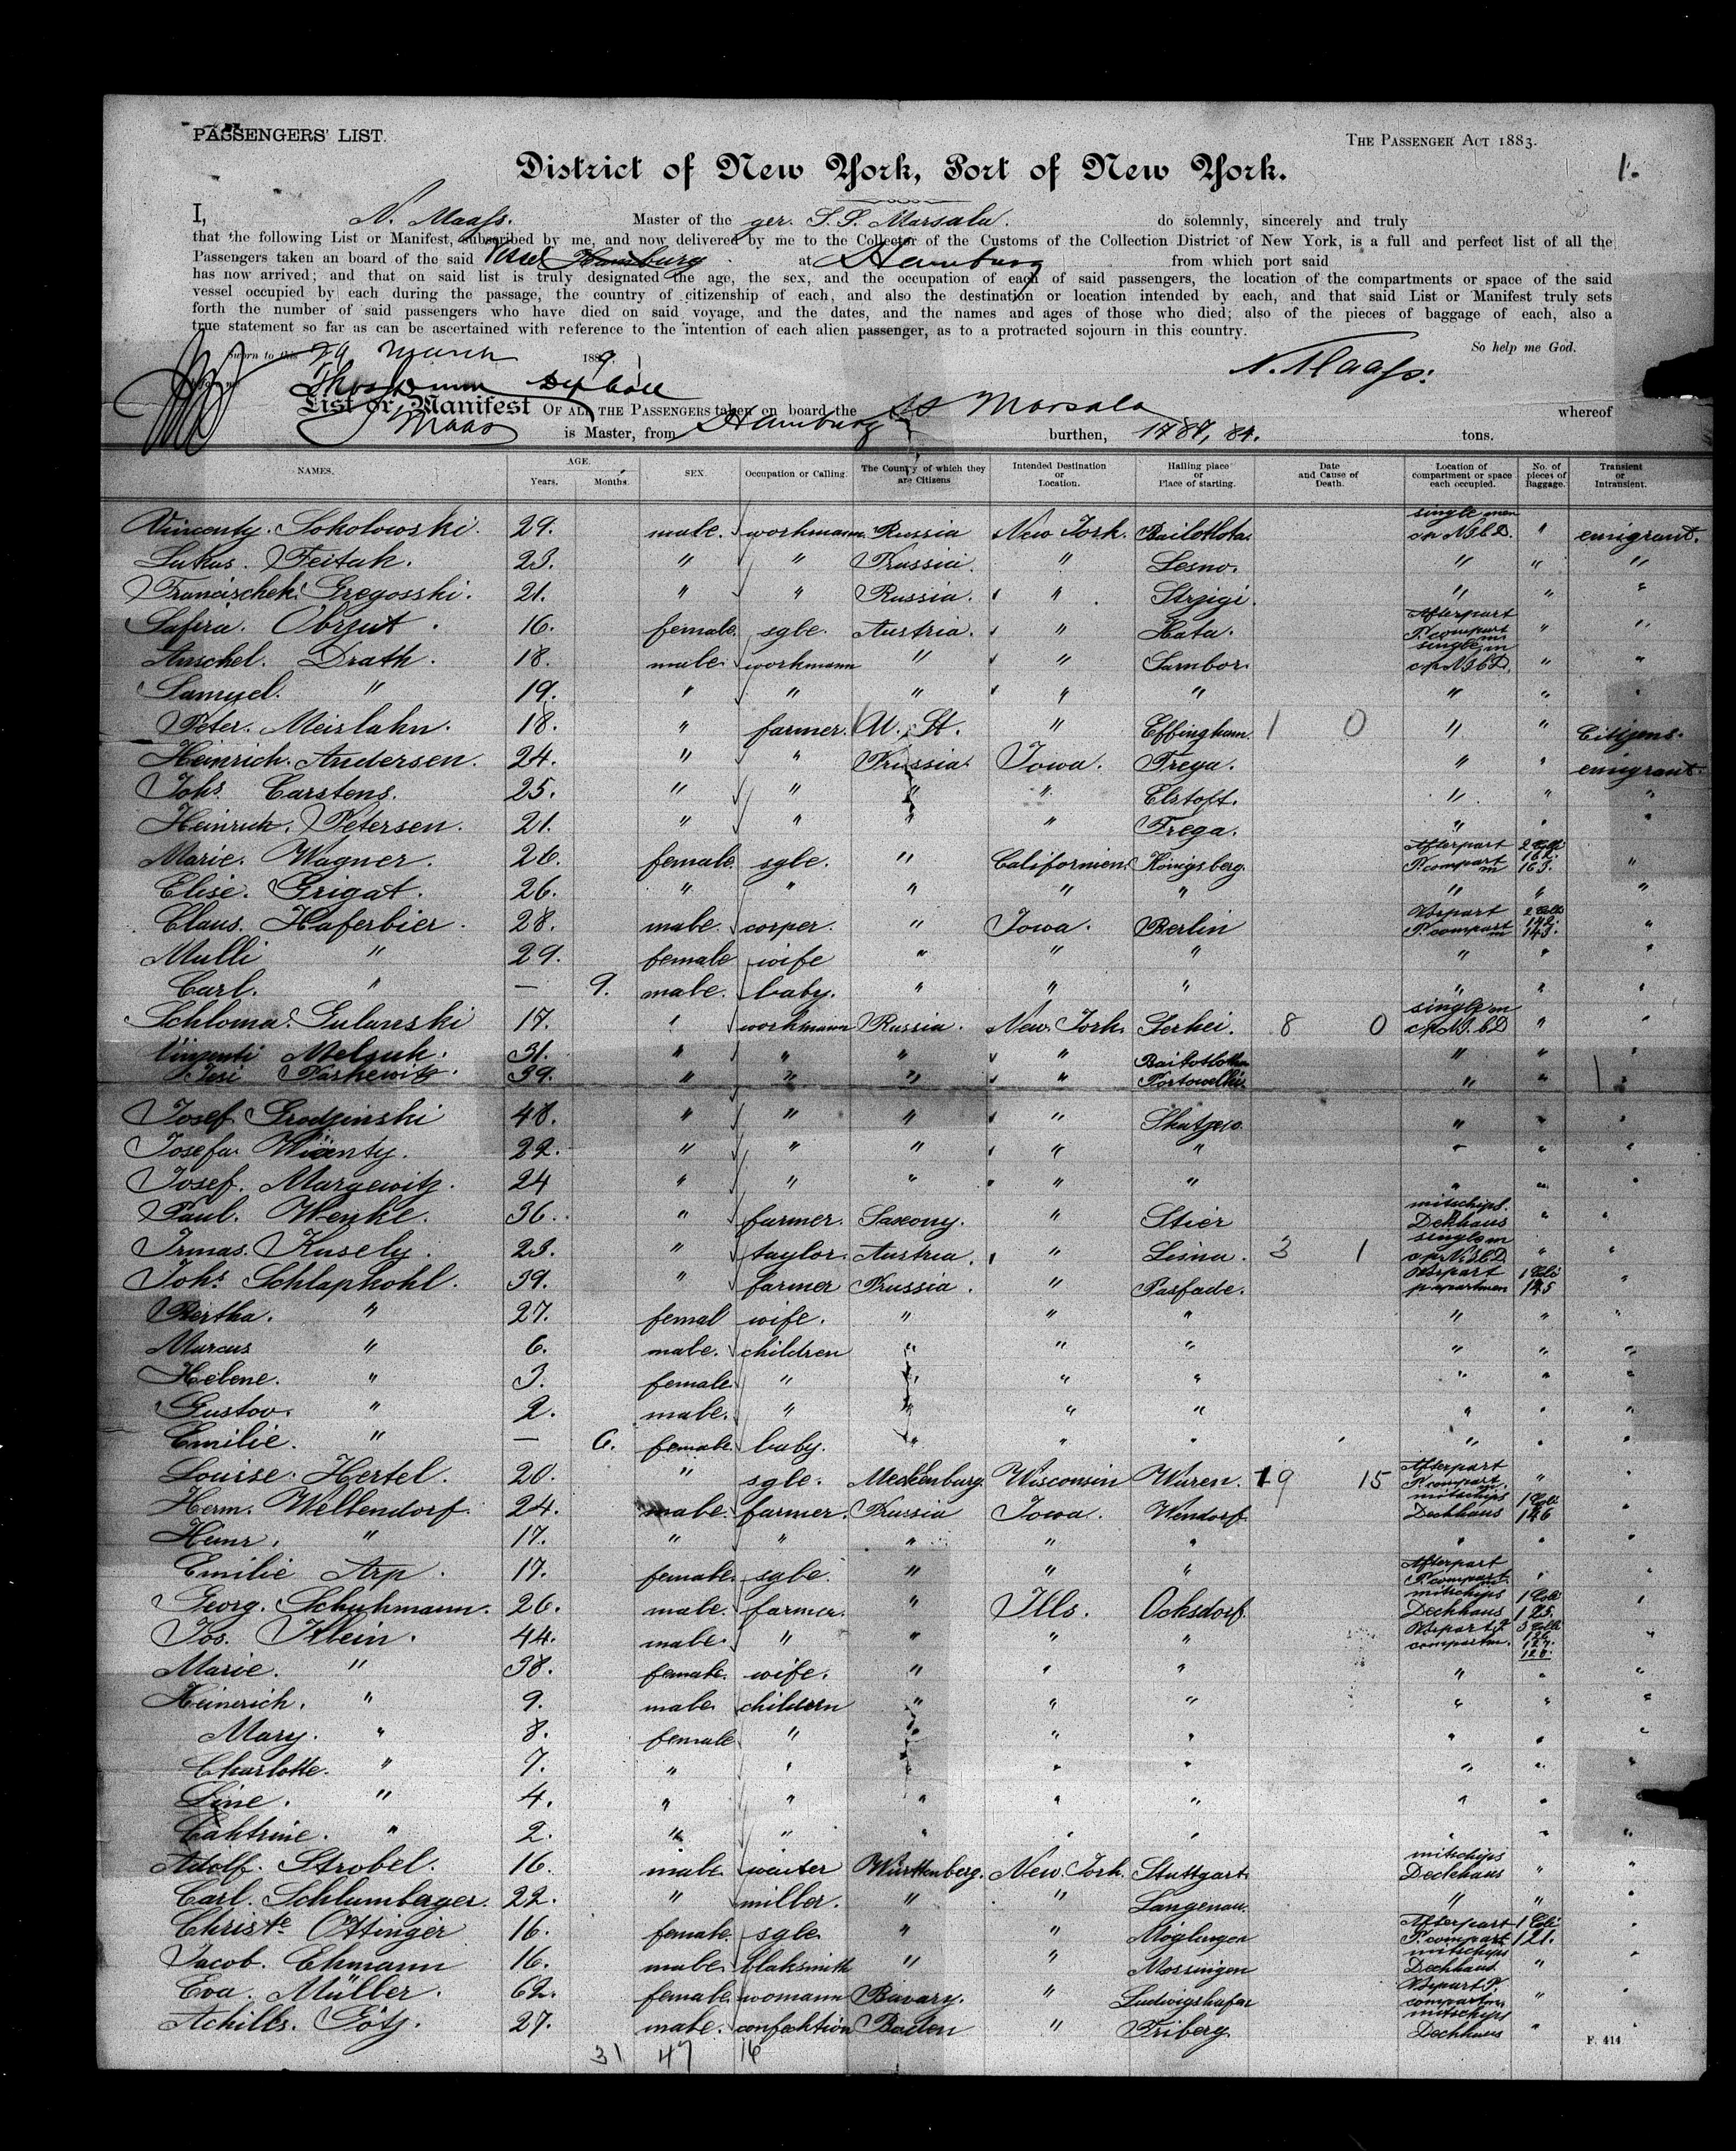 PASSENGERS' LIST.
THE PASSENGER ACT 1883.
1.
District of New York, Port of New York.
I, N. Maass. Master of the ger. S.S. Marsala. do solemnly, sincerely and truly
that the following List or Manifest, subscribed by me, and now delivered by me to the Collector of the Customs of the Collection District of New York, is a full and perfect list of all the
Passengers taken an board of the said Vessel Hamburg at Hamburg from which port said
has now arrived; and that on said list is truly designated the age, the sex, and the occupation of each of said passengers, the location of the compartments or space of the said
vessel occupied by each during the passage, the country of citizenship of each, and also the destination or location intended by each, and that said List or Manifest truly sets
forth the number of said passengers who have died on said voyage, and the dates, and the names and ages of those who died; also of the pieces of baggage of each, also a
true statement so far as can be ascertained with reference to the intention of each alien passenger, as to a protracted sojourn in this country.
Sworn to this 29 March 1889. So help me God.
N. Maass.
List or Manifest OF ALL THE PASSENGERS taken on board the SS Marsala whereof
Maass is Master, from Hamburg burthen, 1787,84. tons.
NAMES. AGE. Years. Months. SEX. Occupation or Calling. The County of which they are Citizens Intended Destination or Location. Hailing place or Place of starting. Date and Cause of Death. Location of compartment or space each occupied. No. of pieces of Baggage. Transient or Intransient.
Vincenty. Sokolowski. 29. male. workmann. Russia New York. single men emigrant.
Lukas. Feitak. 23. " " Prussia. " Lesno. " " "
Francischek. Gregosski. 21. " " Russia. " Strzigi. " " "
Safira. Obrzut. 16. female. sgle. Austria. " Hata. Afterpart P. compartm " "
Anschel. Drath. 18. male. workmann " " Sambor. single m " "
Samuel. " 19. " " " " " " " "
Peter. Meislahn. 18. " farmer. U. St. " Effingham. 1 0 " " Citizens.
Heinrich. Andersen. 24. " " Prussia. Iowa. Treya. " " emigrant.
Johs. Carstens. 25. " " " " Elstoft. " " "
Heinrich. Petersen. 21. " " " " Trega. " " "
Marie. Wagner. 26. female. sgle. " Californien. Königsberg. Afterpart P. compartm 2 Colli 162. 163. "
Elise. Grigat. 26. " " " " " " " "
Claus. Haferbier. 28. male. cosper. " Iowa. Berlin Vorpart P. compartm 2 Colli 142. 143. "
Mulli " 29. female wife " " " " " "
Carl. " — 9. male. baby. " " " " " "
Schloma. Gulanski 17. " workmann Russia. New York. Serhei. 8 0 single m " "
Vinzenti Melsuk. 31. " " " " " " "
39. " " " " " " "
Josef Grodzinski 48. " " " " " " "
Josefa Wicenty. 22. " " " " " " " "
Josef. Margewitz. 24 " " " " " " " "
Paul. Wenkel. 36. " farmer. Saxony. " Stier mitschips. Dekhaus " "
Irmas. Kusely. 23. " taylor. Austria. " Lisna. 3 1 single m " "
Johs. Schlaphohl. 39. " farmer Prussia. " Pasfade. Vorpart 1 Colli 145 "
Bertha. " 27. femal wife. " " " " " "
Marcus " 6. male. children " " " " " "
Helene. " 3. female. " " " " " " "
Gustav. " 2. male. " " " " " " "
Emilie. " — 6. female. baby. " " " " " "
Louise. Hertel. 20. " sgle. Mecklenburg. Wisconsin Waren. 19 15 Afterpart P. compartm. " "
Herm. Wellendorf. 24. male. farmer. Prussia Iowa. Wendorf. mitschips Deckhaus 1 Colli 146 "
Heinr. " 17. " " " " " " " "
Emilie Arp. 17. female. sgle. " " " Afterpart P. compartm. " "
Georg. Schuhmann. 26. male. farmer. " Ills. Ocksdorf. mitschips Deckhaus 1 Colli 125. "
Jos. Klein. 44. male. " " " " Vorpart P. compartm. 3 Colli 126 127. 128. "
Marie. " 38. female. wife. " " " " " "
Heinerich. " 9. male. children " " " " " "
Mary. " 8. female " " " " " " "
Charlotte. " 7. " " " " " " " "
Line. " 4. " " " " " " " "
Cahtrine. " 2. " " " " " " " "
Adolf. Strobel. 16. male. waiter Württenberg. New York. Stuttgart. mitschips Deckhaus " "
Carl. Schlumberger. 22. " miller. " " Langenau. " " "
Christe Ottinger 16. female. sgle. " " Möglingen Afterpart P. compart. 1 Coli 121. "
Jacob. Ehmann 16. male. blaksmith " " Mossingen mitschips Deckhaus. " "
Eva. Müller. 62. female. womann Bavary. " Ludwigshafen Vorpart P. compartm. " "
Achills. Götz. 27. male. confecktion Baden " Friberg. mitschips Deckhaus " "
31 47 16
F. 414